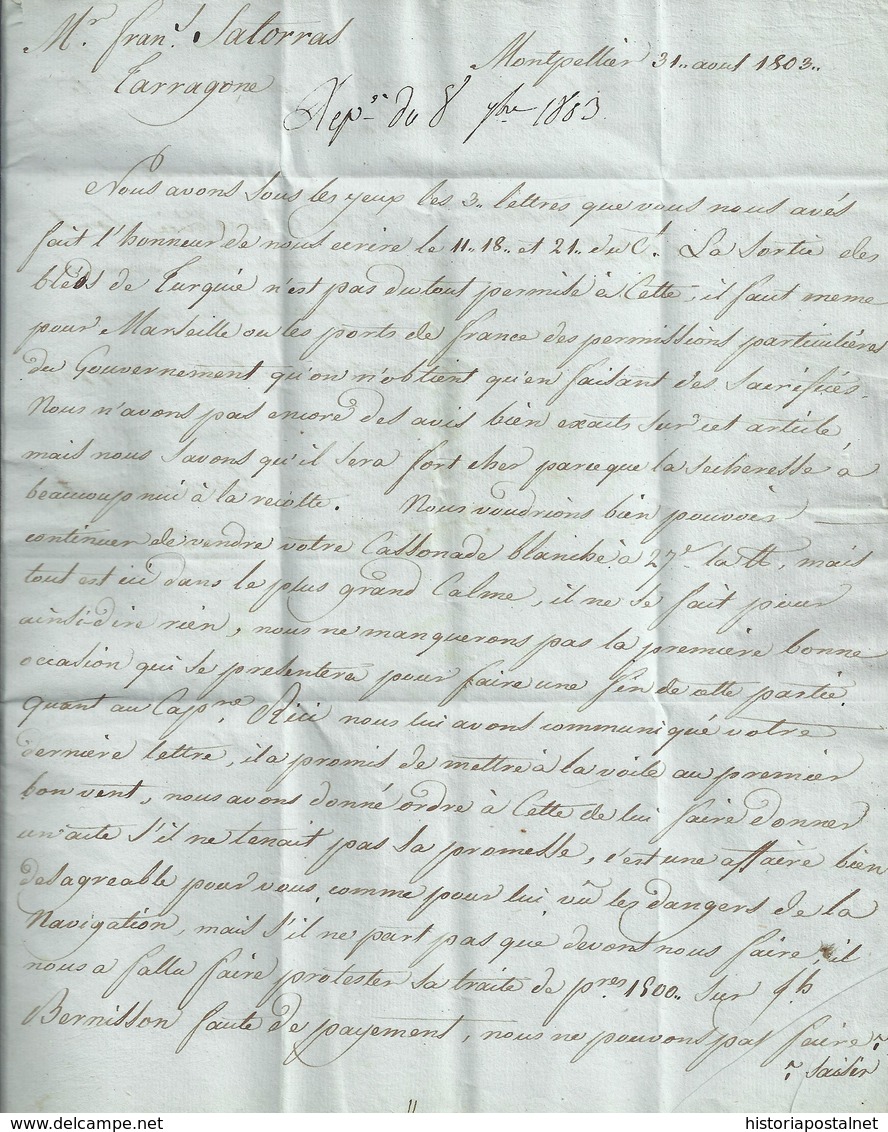 Mr. frans. Satorras
Montpellier 31.. aout 1803..
Tarragone
Repse du 8 7bre 1803
Nous avons sous les yeux les 3.. lettres que vous nous avés
fait l'honneur de nous ecrire le 11.. 18.. et 21.. du Ct. La sortie des
bleds de Turquie n'est pas du tout permise à Cette, il faut meme
pour Marseille ou les ports de france des permissions particulières
du Gouvernement qu'on n'obtient qu'en faisant des sacrifices.
Nous n'avons pas encore des avis bien exacts sur cet article
mais nous savons qu'il sera fort cher parce que la secheresse a
beaucoup nui à la recolte. Nous voudrions bien pouvoir
continuer de vendre votre Cassonade blanche à 27s. la ℔, mais
tout est ici dans le plus grand Calme, il ne se fait pour
ainsi dire rien, nous ne manquerons pas la première bonne
occasion qui se presentera pour faire une fin de cette partie.
quant au Capne. Rici nous lui avons communiqué votre
derniere lettre, il a promis de mettre à la voile au premier
bon vent, nous avons donné ordre à Cette de lui faire donner
un acte s'il ne tenait pas sa promesse, c'est une affaire bien
desagreable pour vous comme pour lui vû les dangers de la
Navigation, mais s'il ne part pas que devons nous faire, il
nous a fallu faire protester sa traite de pres 1800.. sur Jh
Bernisson faute de payement, nous ne pouvons pas faire
saisir
historiapostalnet